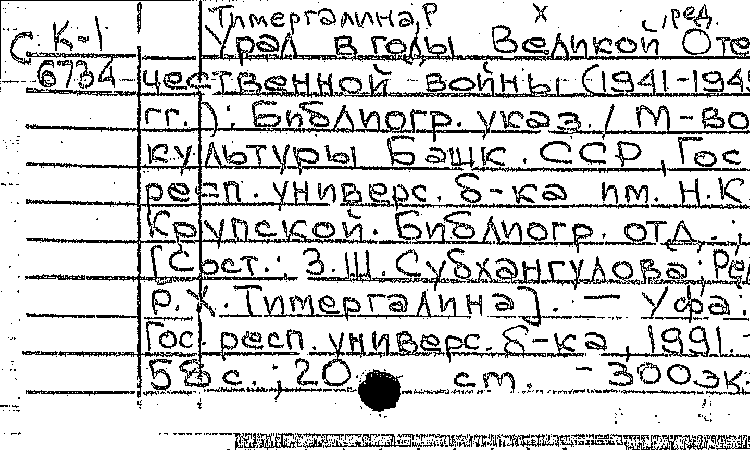 Тимергалина, Р Х , ред.
С К-1
6734
Урал в годы Великой Оте
чественной войны (1941-1945
гг.): Библиогр. указ. / М-во
культуры Башк. ССР, Гос
респ. универс. б-ка им. Н.К
Крупской. Библиогр. отд.;
[Сост.: З.Ш. Субхангулова; Ред
Р.Х. Тимергалина]. — Уфа:
Гос. респ. универс. б-ка, 1991.-
58 с.; 20 см. - 300 эк.